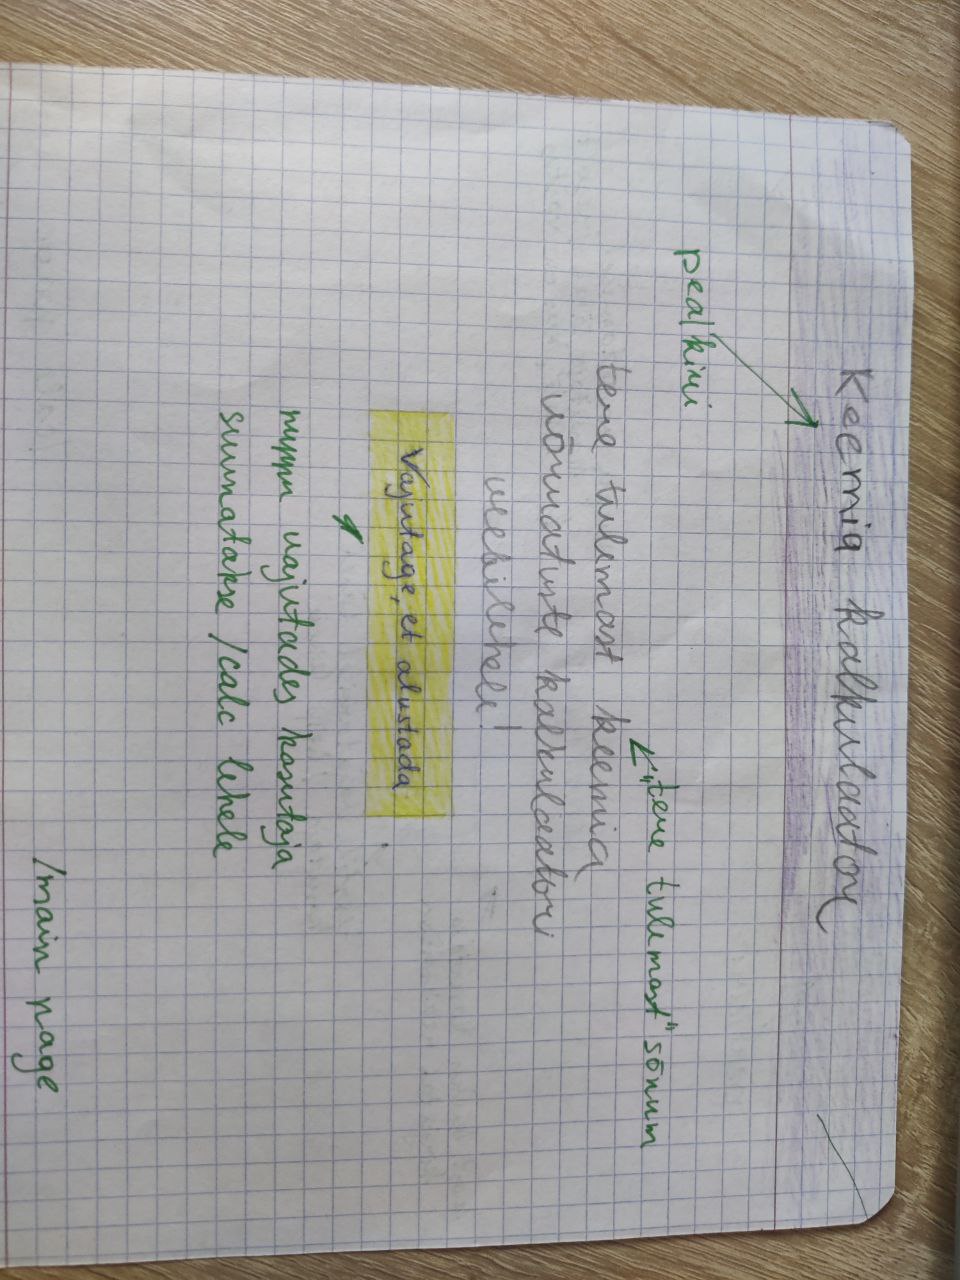 Keemia kalkulaator
pealkiri
"tere tulemast" sõnum
tere tulemast keemia
võrratuste kalkulaatori
veebilehele!
Vajutage, et alustada
nuppu vajutades kasutaja
suunatakse /calc lehele
/main page